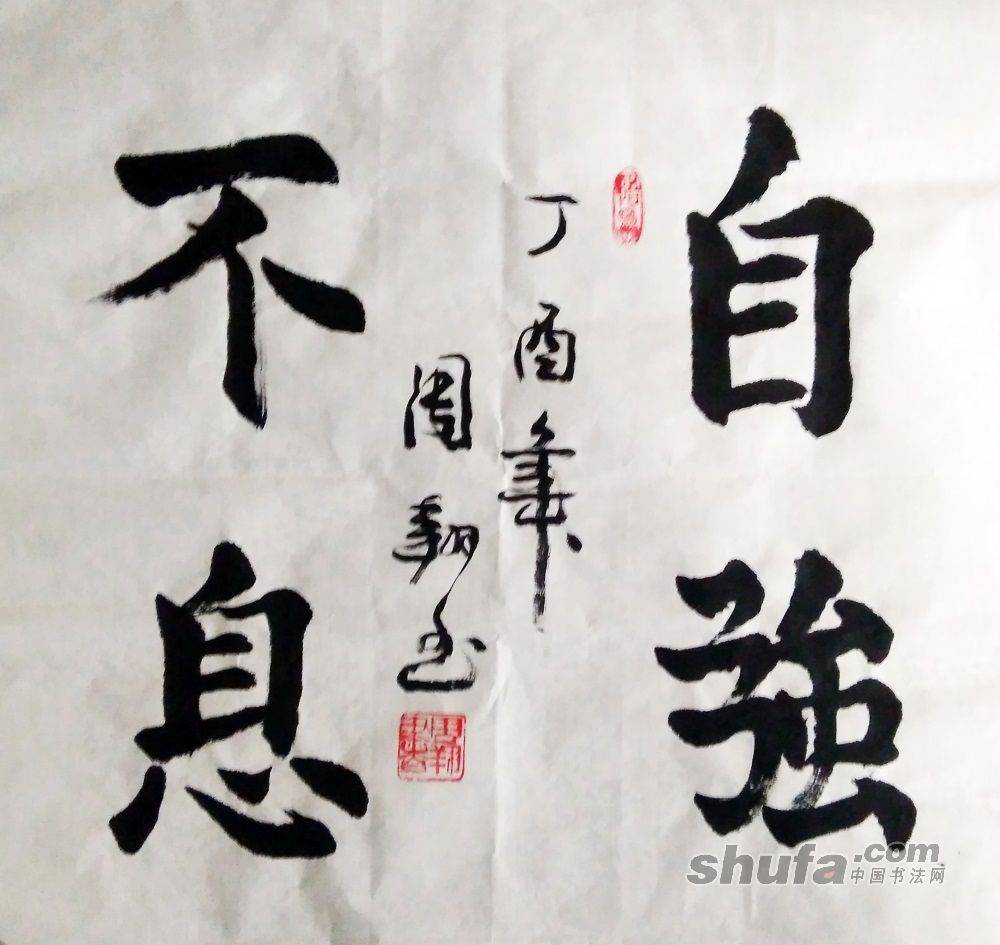 自強
不息
丁酉年
周翔書
shufa.com
中国书法网